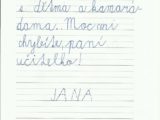 s dětma a kamará-
dama.. Moc mi
chybíte, paní
učitelko!
JANA